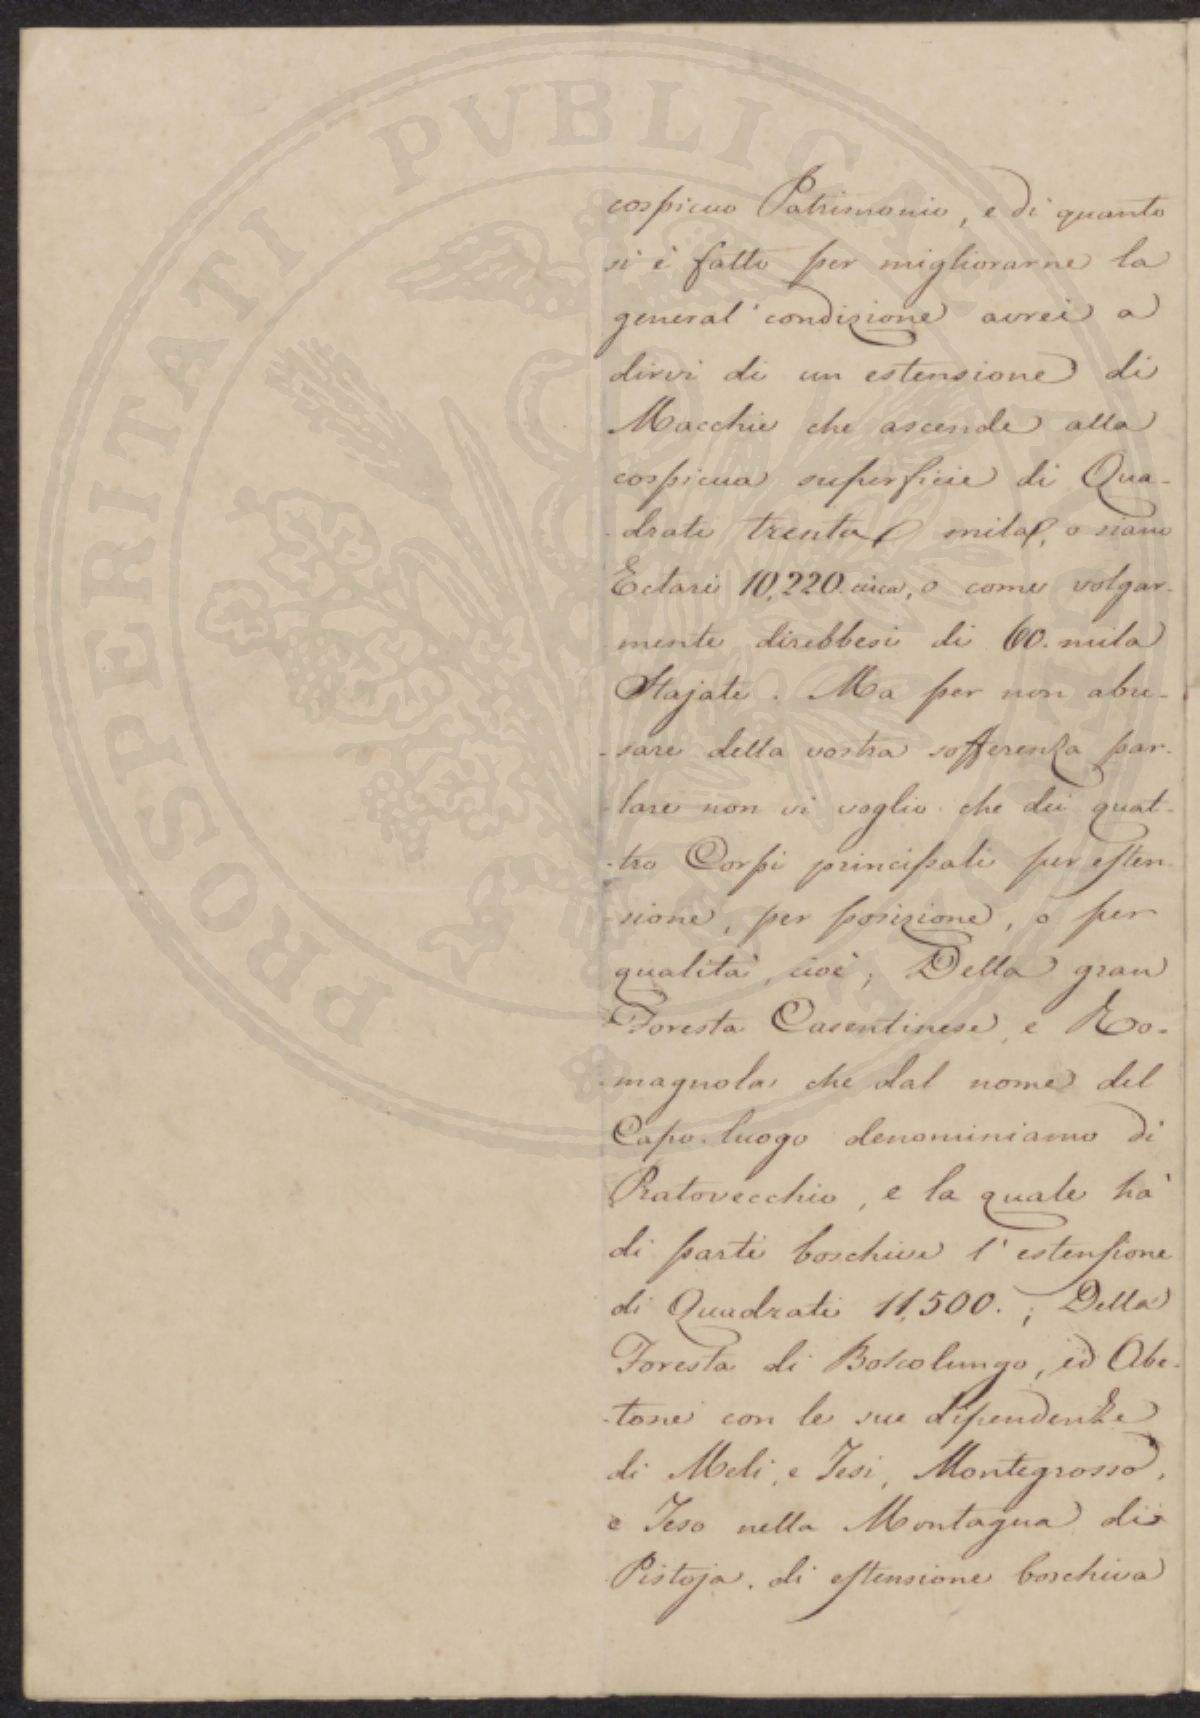 PROSPERITATI PVBLICAE
cospicuo Patrimonio, e di quanto
si è fatto per migliorarne la
general condizione avrei a
dirvi di un estensione di
Macchie che ascende alla
cospicua superficie di Qua-
-drati trenta mila, o siano
Ectari 10,220. circa, o come volgar-
mente direbbesi di 60. mila
Stajate. Ma per non abu-
-sare della vostra sofferenza par-
-lare non vi voglio che dei quat-
-tro Corpi principali per esten-
-sione, per posizione, o per
qualità, cioè; Della gran
Foresta Casentinese, e Ro-
-magnola, che dal nome del
Capo-luogo denominiamo di
Pratovecchio, e la quale hà
di parti boschive l'estensione
di Quadrati 11,500.; Della
Foresta di Boscolungo, ed Abe-
-tone con le sue dipendenze
di Meli, e Tesi, Montegrosso,
e Teso nella Montagna di
Pistoja, di estensione boschiva